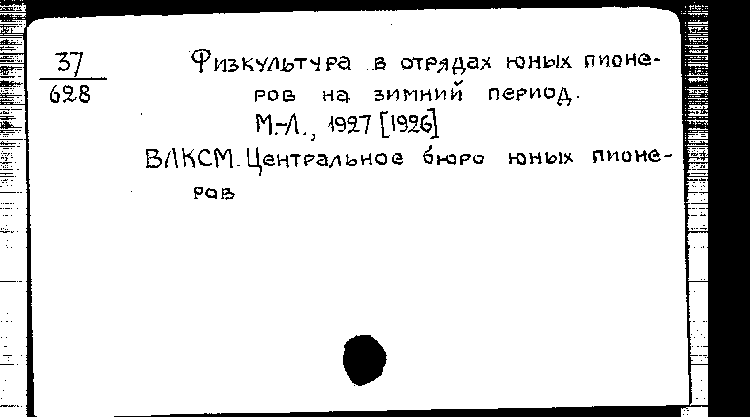 37
628
Физкультура в отрядах юных пионе-
ров на зимний период.
М.-Л., 1927 [1926]
ВЛКСМ. Центральное бюро юных пионе-
ров